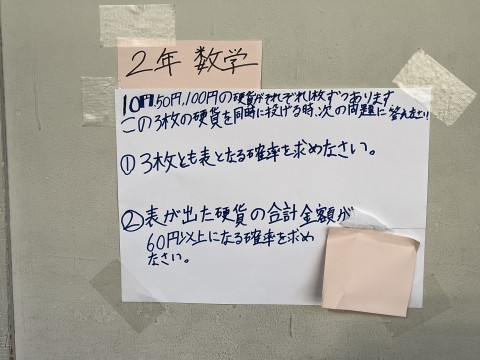 2年 数学
10円,50円,100円の硬貨がそれぞれ1枚ずつあります
この3枚の硬貨を同時に投げる時、次の問題に答えなさい
① 3枚とも表となる確率を求めなさい。
② 表が出た硬貨の合計金額が
60円以上になる確率を求め
なさい。